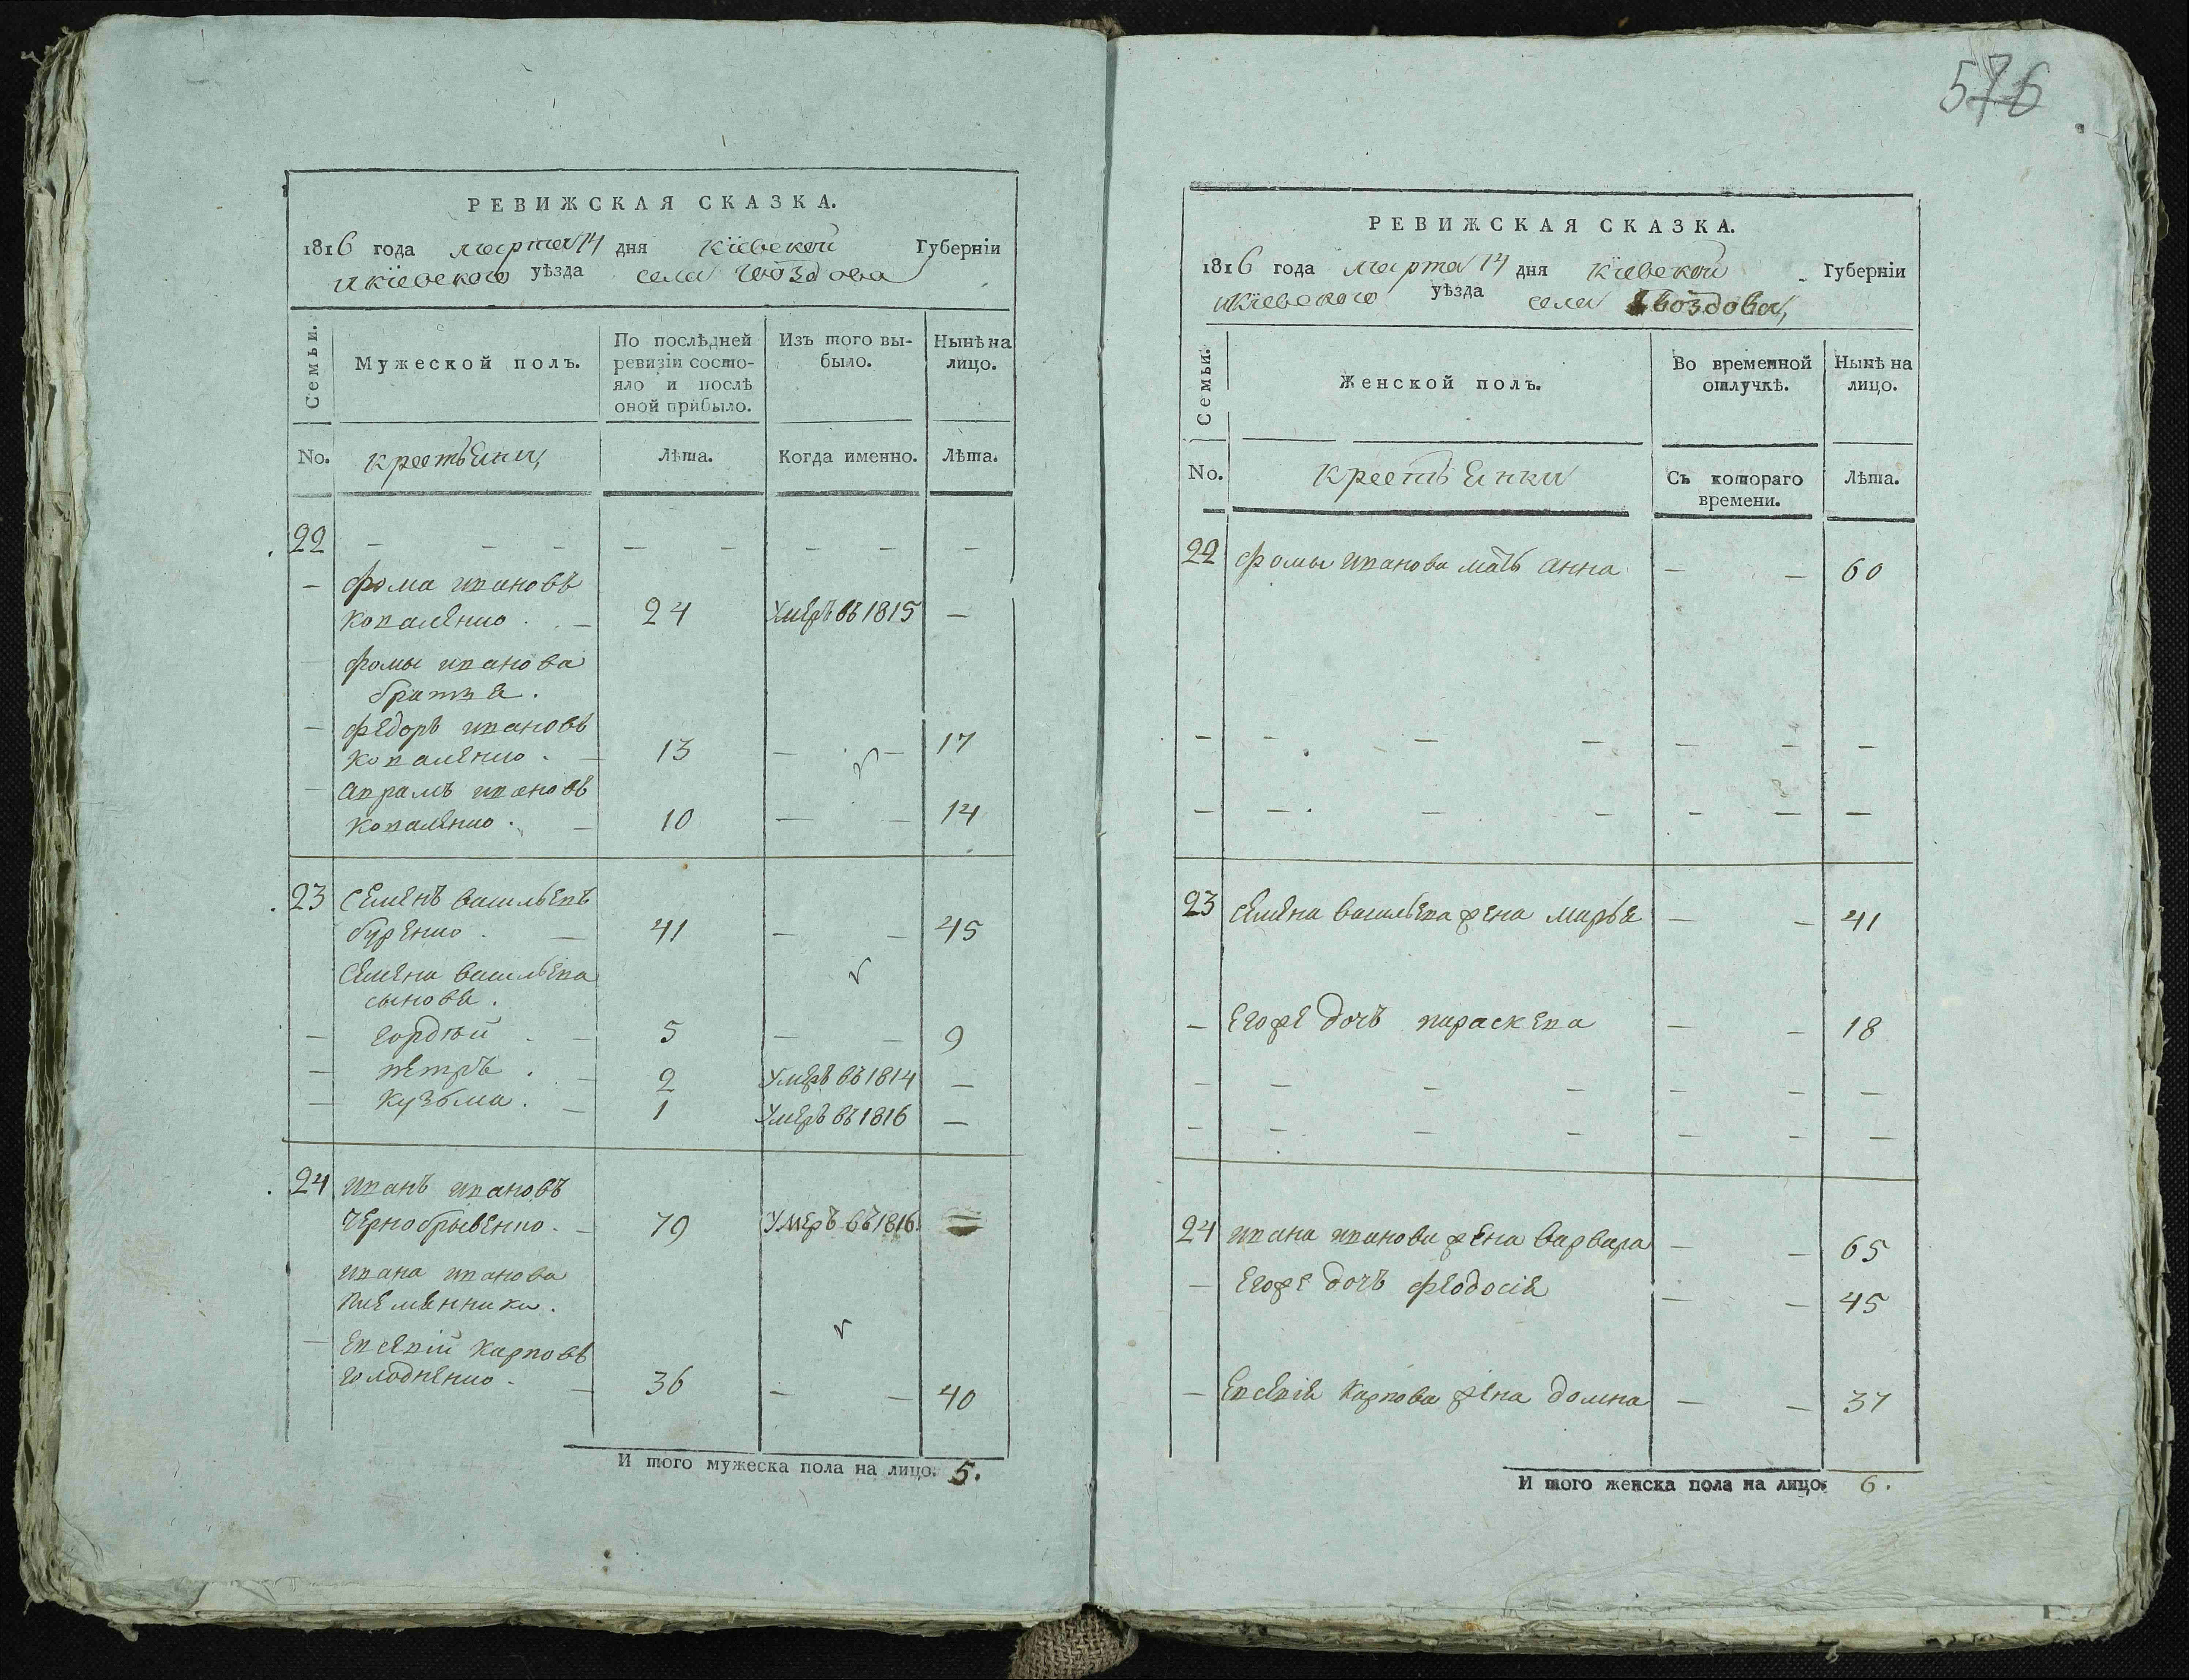 576
РЕВИЖСКАЯ СКАЗКА.
1816 года марта 14 дня Кіевской Губерніи
и кіевского уѣзда села Гвоздова
Семьи.
Мужеской полъ.
По послѣдней ревизіи состояло и послѣ оной прибыло.
Изъ того выбыло.
Нынѣ на лицо.
No. крестьяни,
Лѣта.
Когда именно.
Лѣта.
22 — — — — — — — —
— фома ивановъ
коваленко . — 24 Умеръ въ 1815 —
фомы иванова
братья .
— федоръ ивановъ
коваленко . — 13 — — 17
— аврамъ ивановъ
коваленко . — 10 — — 14
23 Семенъ васильевъ
буренко . — 41 — — 45
Семена васильева
сыновья .
— гордѣй . — 5 — — 9
— петръ . — 2 Умеръ въ 1814 —
— Кузьма . — 1 Умеръ въ 1816 —
24 иванъ ивановъ
чернобрывенко . — 79 Умеръ въ 1816. —
ивана иванова
племянники .
— евсевій карповъ
голодненко . — 36 — — 40
И того мужеска пола на лицо. 5.
РЕВИЖСКАЯ СКАЗКА.
1816 года марта 14 дня Кіевской Губерніи
и Кіевского уѣзда села Гвоздова,
Семьи.
Женской полъ.
Во временной отлучкѣ.
Нынѣ на лицо.
No. крестьянки
Съ котораго времени.
Лѣта.
22 фомы иванова мать анна — — 60
— — — — — — —
— — — — — — —
23 семена васильева жена марья — — 41
— егоже дочь параскева — — 18
— — — — — — —
— — — — — — —
24 ивана иванова жена варвара — — 65
— егоже дочь феодосія — — 45
— евсевія карпова жена домна — — 37
И того женска пола на лицо. 6.